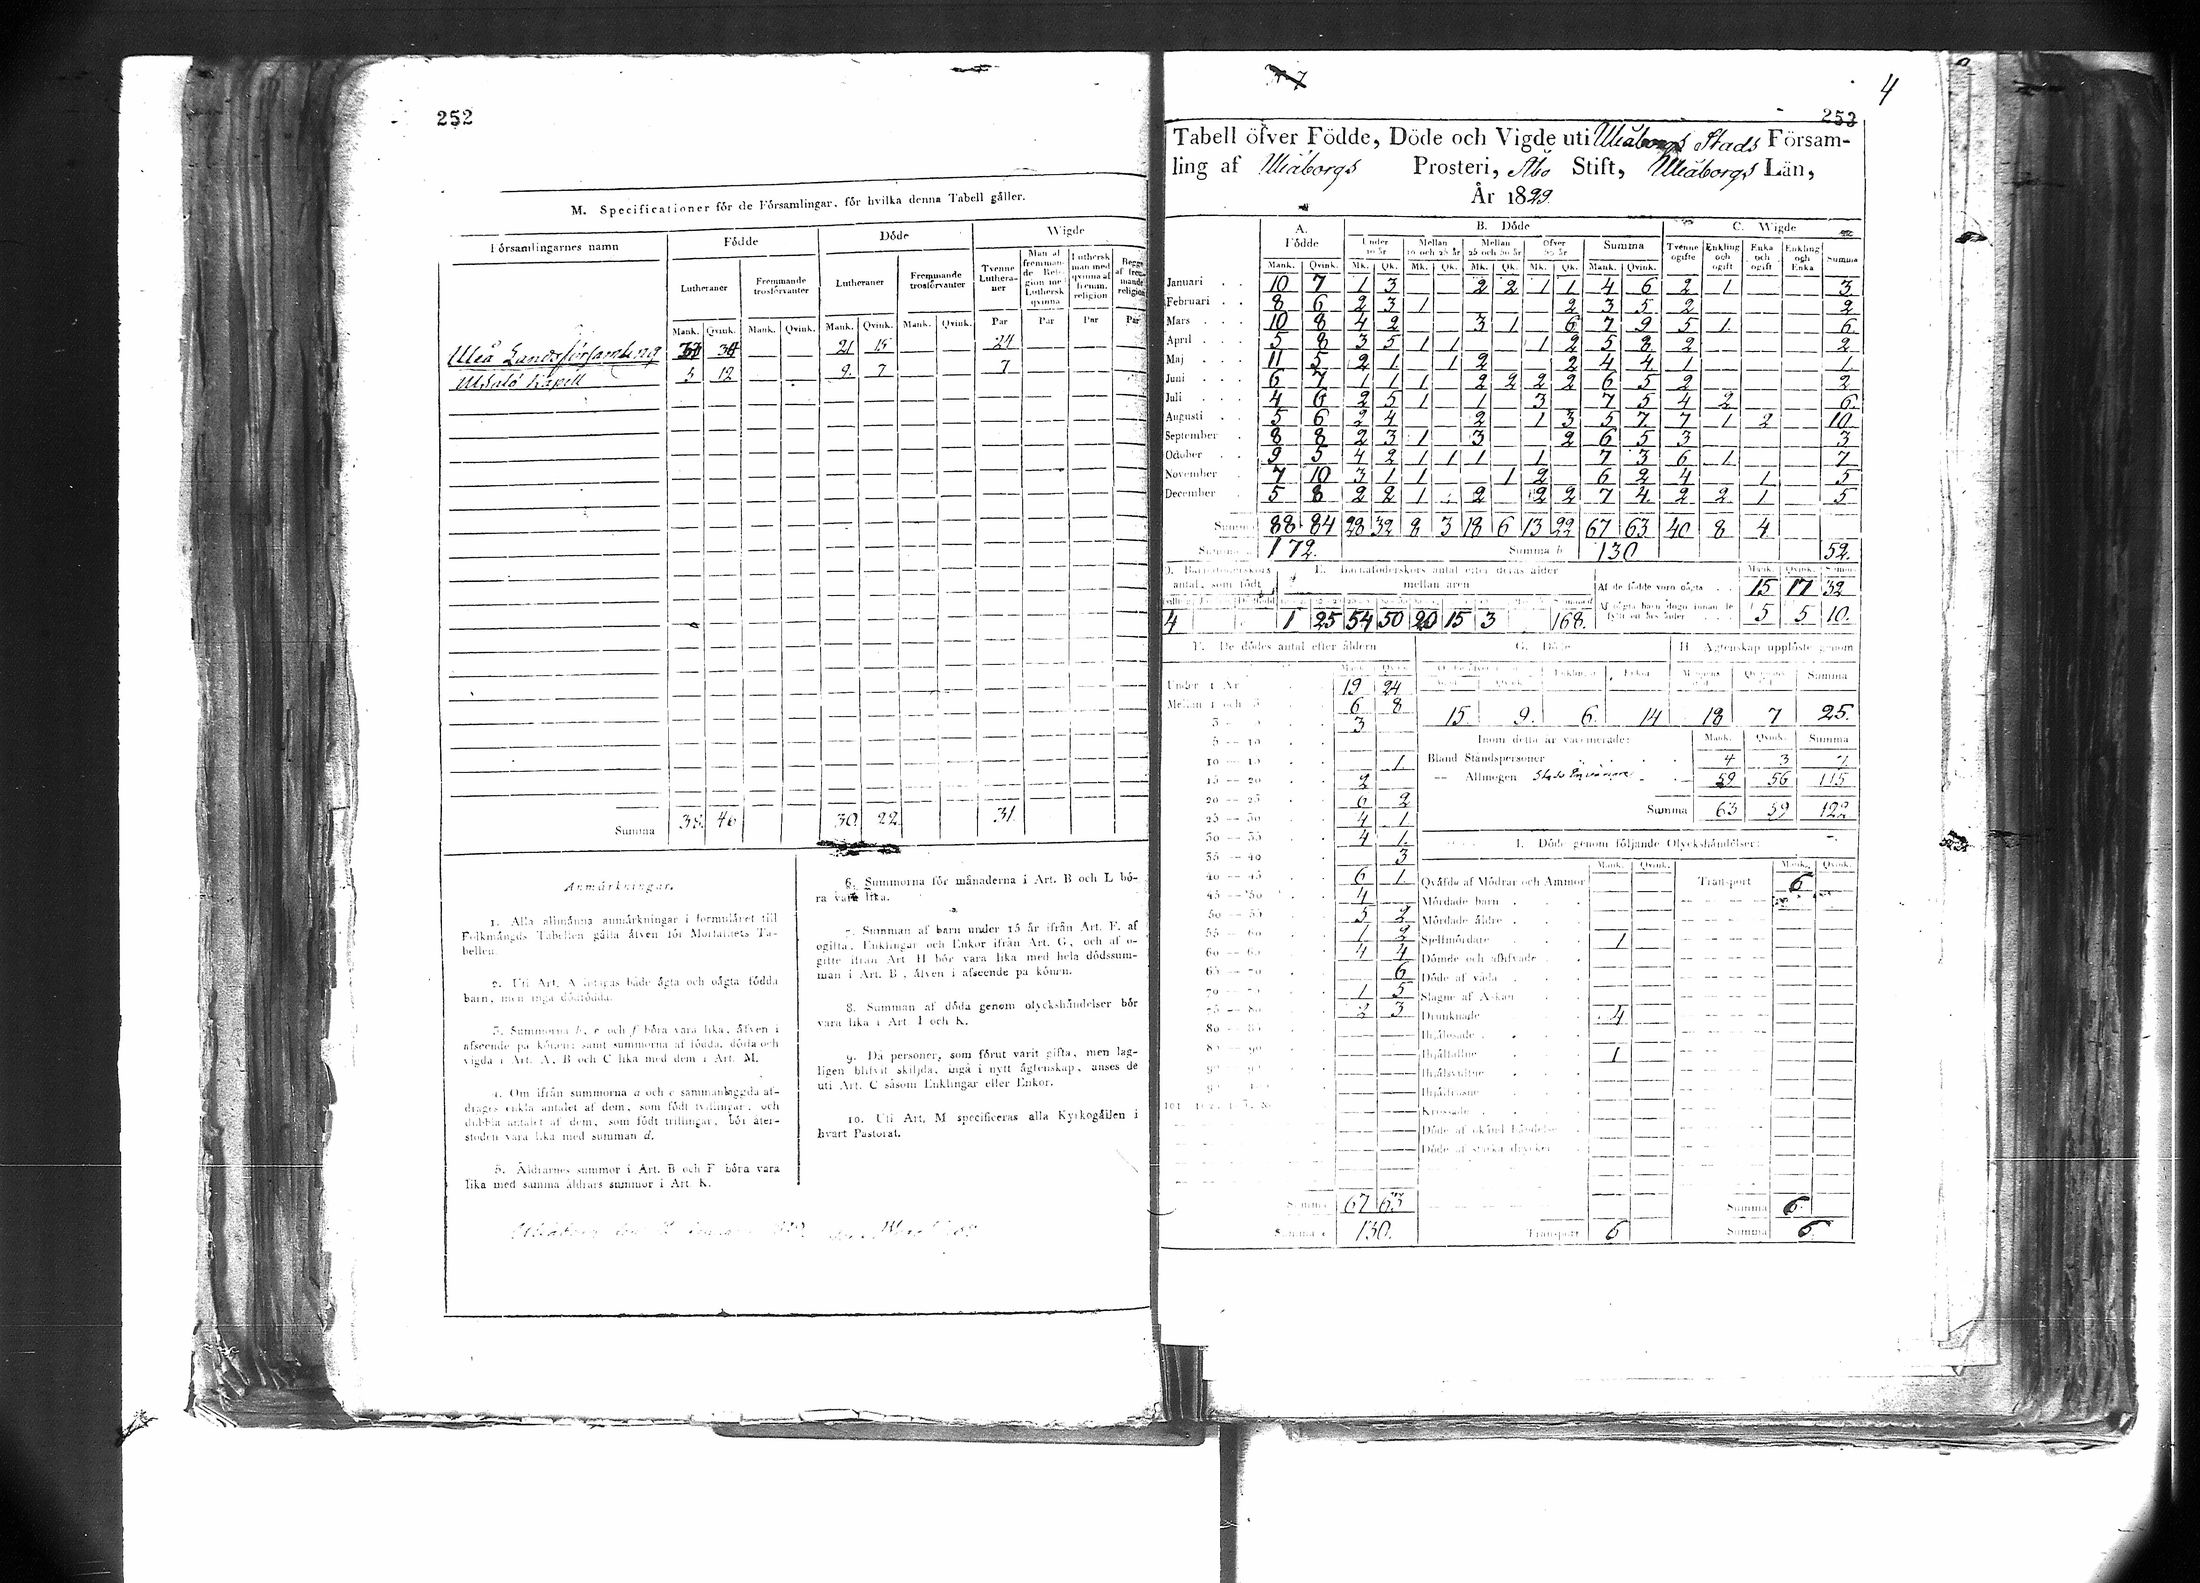 252
M. Specificationer för de Församlingar, för hvilka denna Tabell gäller.
Församlingarnes namn Födde Döde Wigde
Lutheraner Fremmande trosförvanter Lutheraner Fremmande trosförvanter Tvenne Lutheraner Man af fremmande Religion med Luthersk qvinna Luthersk man med qvinna af fremm. religion Begge af fremmande religion
Mank. Qvink. Mank. Qvink. Mank. Qvink. Mank. Qvink. Par Par Par Par
Uleå Landsförsamling 34 21 15 24
Kapell 5 12 9 7 7
Summa 38 46 30 22 31
Anmärkningar.
1. Alla allmänna anmärkningar i formuläret till
Folkmängds Tabellen gälla äfven för Mortalitets Ta-
bellen.
2. Uti Art. A intagas både ägta och oägta födda
barn, men inga dödfödda.
3. Summorna b, e och f böra vara lika, äfven i
afseende på könen; samt summorna af födda, döda och
vigda i Art. A, B och C lika med dem i Art. M.
4. Om ifrån summorna a och c sammanlaggda af-
drages enkla antalet af dem, som födt tvillingar, och
dubbla antalet af dem, som födt trillingar, bör åter-
stoden vara lika med summan d.
5. Åldrarnes summor i Art. B och F böra vara
lika med samma åldrars summor i Art. K.
6. Summorna för månaderna i Art. B och L bö-
ra vara lika.
7. Summan af barn under 15 år ifrån Art. F. af
ogifta, Enklingar och Enkor ifrån Art. G, och af o-
gifte ifrån Art H bör vara lika med hela dödssum-
man i Art. B, äfven i afseende på könen.
8. Summan af döda genom olyckshändelser bör
vara lika i Art. I och K.
9. Då personer, som förut varit gifta, men lag-
ligen blifvit skiljda, ingå i nytt ägtenskap, anses de
uti Art. C såsom Enklingar eller Enkor.
10. Uti Art. M specificeras alla Kyrkogällen i
hvart Pastorat.
4
253
Tabell öfver Födde, Döde och Vigde uti Uleåborgs Stads Försam-
ling af Uleåborgs Prosteri, Åbo Stift, Uleåborgs Län,
År 1829.
A. Födde B. Döde C. Wigde
Under 10 år Mellan 10 och 25 år Mellan 25 och 50 år Öfver 50 år Summa Tvenne ogifte Enkling och ogift Enka och ogift Enkling och Enka Summa
Mank. Qvink. Mk. Qk. Mk. Qk. Mk. Qk. Mk. Qk. Mank. Qvink.
Januari 10 7 1 3 2 2 1 1 4 6 2 1 3
Februari 8 6 2 3 1 2 3 5 2 2
Mars 10 8 4 2 3 1 6 7 9 5 1 6
April 5 8 3 5 1 1 1 2 5 8 2 2
Maj 11 5 2 1 1 2 2 4 4 1 1
Juni 6 7 1 1 1 2 2 2 2 6 5 2 2
Juli 4 6 2 5 1 1 3 7 5 4 2 6
Augusti 5 6 2 4 2 1 3 5 7 7 1 2 10
September 8 8 2 3 1 3 2 6 5 3 3
October 9 5 4 2 1 1 1 1 7 3 6 1 7
November 7 10 3 1 1 1 2 6 2 4 1 5
December 5 8 2 2 1 2 2 2 7 4 2 2 1 5
Summa 88 84 28 32 8 3 18 6 13 22 67 63 40 8 4
Summa a 172. Summa b 130 52.
D. Barnaföderskors antal, som födt E. Barnaföderskors antal efter deras ålder mellan åren
Mank. Qvink. Summa
Af de födde voro oägta 15 17 32
Af oägta barn dogo innan de fyllt ett års ålder 5 5 10.
4 1 25 54 50 20 15 3 168.
F. De dödes antal efter åldern G. Döde H. Ägtenskap upplöste genom
Mank. Qvink. Enklingar Enkor Mannens död Qvinnans död Summa
Under 1 År 19 24
Mellan 1 och 3 6 8
3 — 5 3
15. 9. 6. 14 18 7 25.
5 — 10
10 — 15 1
15 — 20 2
20 — 25 6 2
25 — 30 4 1
30 — 35 4 1
35 — 40 3
40 — 45 6 1
45 — 50 4
50 — 55 5 2
55 — 60 1 2
60 — 65 4 4
65 — 70 6
70 — 75 1 5
75 — 80 2 3
80 — 85
85 — 90
Summa 67 63
Summa e 130.
Inom detta år vaccinerade: Mank. Qvink. Summa
Bland Ståndspersoner 4 3 7
— Allmogen 59 56 115
Summa 63 59 122
I. Döde genom följande Olyckshändelser:
Mank. Qvink. Mank. Qvink.
Qväfde af Mödrar och Ammor Transport 6
Mördade barn
Mördade äldre
Sjelfmördare 1
Dömde och aflifvade
Döde af våda
Slagne af Åskan
Drunknade 4
Ihjälosade
Ihjälfallne 1
Ihjälsvultne
Ihjälfrosne
Krossade
Döde af okänd händelse
Döde af starka drycker
Summa 6.
Transport 6 Summa 6.